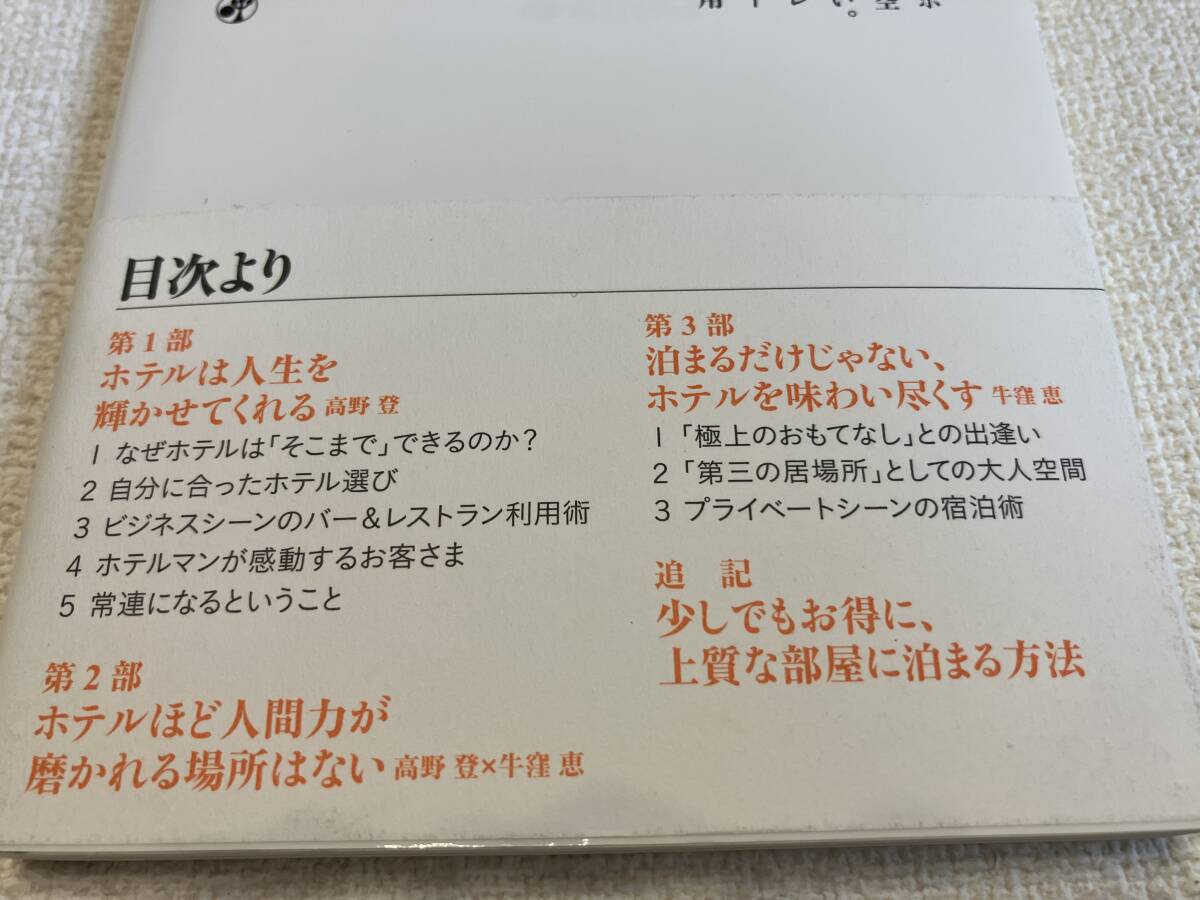 目次より
第1部
ホテルは人生を
輝かせてくれる 高野 登
1 なぜホテルは「そこまで」できるのか？
2 自分に合ったホテル選び
3 ビジネスシーンのバー＆レストラン利用術
4 ホテルマンが感動するお客さま
5 常連になるということ
第2部
ホテルほど人間力が
磨かれる場所はない 高野 登×牛窪 恵
第3部
泊まるだけじゃない、
ホテルを味わい尽くす 牛窪 恵
1 「極上のおもてなし」との出逢い
2 「第三の居場所」としての大人空間
3 プライベートシーンの宿泊術
追 記
少しでもお得に、
上質な部屋に泊まる方法